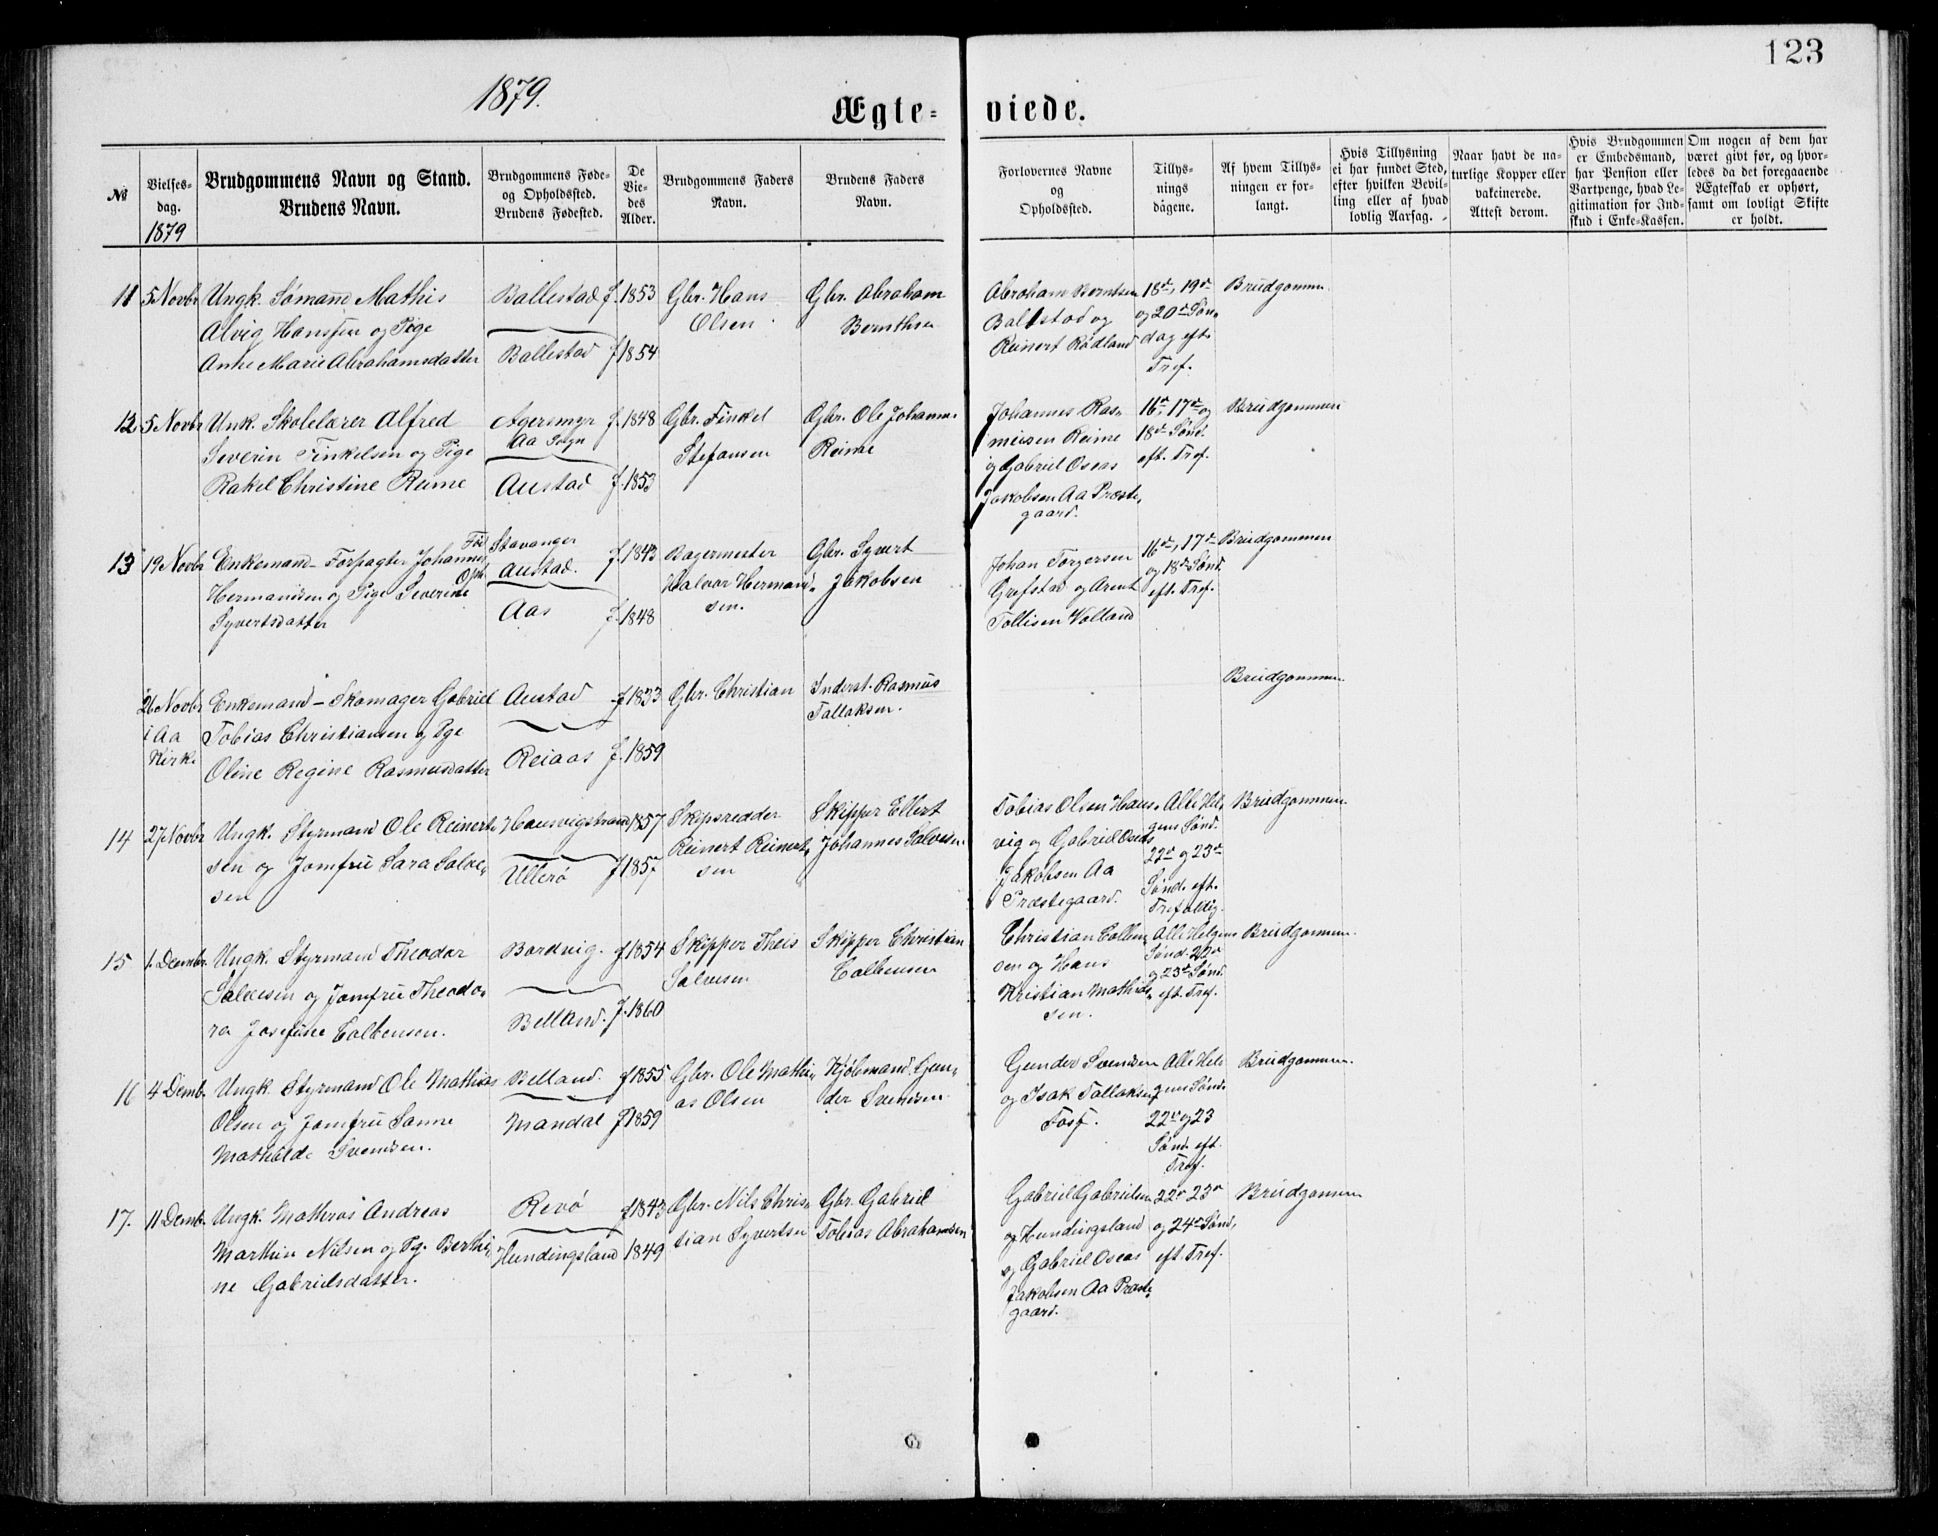 123
1879.
Ægte-
viede.
№
Vielses-
dag.
1879
Brudgommens Navn og Stand.
Brudens Navn.
Brudgommens Føde-
og Opholdssted.
Brudens Fødested.
De
Vie-
des
Alder.
Brudgommens Faders
Navn.
Brudens Faders
Navn.
Forlovernes Navne
og
Opholdssted.
Tillys-
nings
dagene.
Af hvem Tillys-
ningen er for-
langt.
Hvis Tillysning
ei har fundet Sted,
efter hvilken Bevil-
ling eller af hvad
lovlig Aarsag.
Naar havt de na-
turlige Kopper eller
vakcinerede.
Attest derom.
Hvis Brudgommen
er Embedsmand,
har Pension eller
Vartpenge, hvad Le-
gitimation for Ind-
skud i Enke-Kassen.
Om nogen af dem har
været givt før, og hvor-
ledes da det foregaaende
Ægteskab er ophørt,
samt om lovligt Skifte
er holdt.
11
5 Novbr
Ungk. Sømand Mathis
Alvig Hanssen og Pige
Anne Marie Abrahamsdatter
Ballestad
Ballestad
f. 1853
f. 1854
Gbr. Hans
Olsen
Gbr. Abraham
Bernthsen
Abraham Berntsen
Ballestad og
Reinert Rødland
18de, 19de
og 20de Søn-
dag eft.
Tref.
Brudgommen
12
5 Novbr
Unk. Skolelærer Alfred
Severin Finkelsen og Pige
Rakel Christine Reime
Agersmyr
Aa Sogn
Austad
f. 1848
f. 1853
Gbr. Finkel
Stefansen
Gbr. Ole Johann.
Reime
Johannes Ras-
musen Reime
og Gabriel Oseas
Jakobsen Aa Præste-
gaard.
16de, 17de og
18de Sønd.
eft. Tref.
Brudgommen
13
19 Novbr
Enkemand - Forpagter Johannes
Hermansen og Pige Severine
Syvertsdatter
Fød
Stavanger
Oph.
Austad.
Aas
f. 1843
f. 1848
Bagermester
Halvor Herman-
sen.
Gbr. Syvert
Jakobsen
Johan Torgersen
Grefstad og Arent
Tollisen Volland
16de, 17de
og 18de Sønd.
eft. Tref.
Brudgommen
26 Novbr
i Aa
Kirk.
Enkemand - Skomager Gabriel
Tobias Christiansen og Pge
Oline Regine Rasmusdatter
Austad
Reiaas
f 1833
f. 1859
Gbr. Christian
Inderst. Rasmus
Tallaksen.
Brudgommen
14
27 Novbr
Ungk. Styrmand Ole Reinert-
sen og Jomfru Sara Salve-
sen
Haavigstrand
Ullerø
1857
f 1857
Skipsredder
Reinert Reinert-
sen
Skipper Ellert
Johannes Salvesen
Tobias Olsen Haus-
vig og Gabriel Oseas
Jakobsen Aa
Præstegaard.
Alle Hel-
gens Sønd.
22de og 23de
Sønd. eft.
Trefoldig.
Brudgommen
15
1. Decmbr.
Ungk. Styrmand Theodor
Salvesen og Jomfru Theodo-
ra Josefine Colbensen.
Bordvig.
Belland.
f 1854
f. 1860
Skipper Theis
Salvesen
Skipper Christian
Colbensen
Christian Colben-
sen og Hans
Kristian Mathis-
sen.
Alle Helgens
Sønd. 22de
og 23de Sønd.
eft. Tref.
Brudgommen.
16
4 Decmb.
Ungk. Styrmand Ole Mathias
Olsen og Jomfru Sanne
Mathilde Svendsen.
Belland.
Mandal
f 1855
f 1859
Gbr. Ole Mathi-
as Olsen
Kjøbmand Gun-
der Svendsen
Gunder Svendsen
og Isak Tallaksen
Fosf.
Alle Hel-
gens Sønd.
22de og 23
Sønd. eft.
Tref.
Brudgommen.
17.
11 Decmb.
Ungk. Mathias Andreas
Marthin Nilsen og Pg. Berthi-
ne Gabrielsdatter.
Revø
Hundingsland
f 1843
1849
Gbr. Nils Chris-
tian Syvertsen
Gbr. Gabriel
Tobias Abrahamsen
Gabriel Gabrielsen
og Hundingsland
og Gabriel Oseas
Jakobsen Aa Præste-
gaard.
22de 23de
og 24de Sønd.
eft. Tref.
Brudgommen